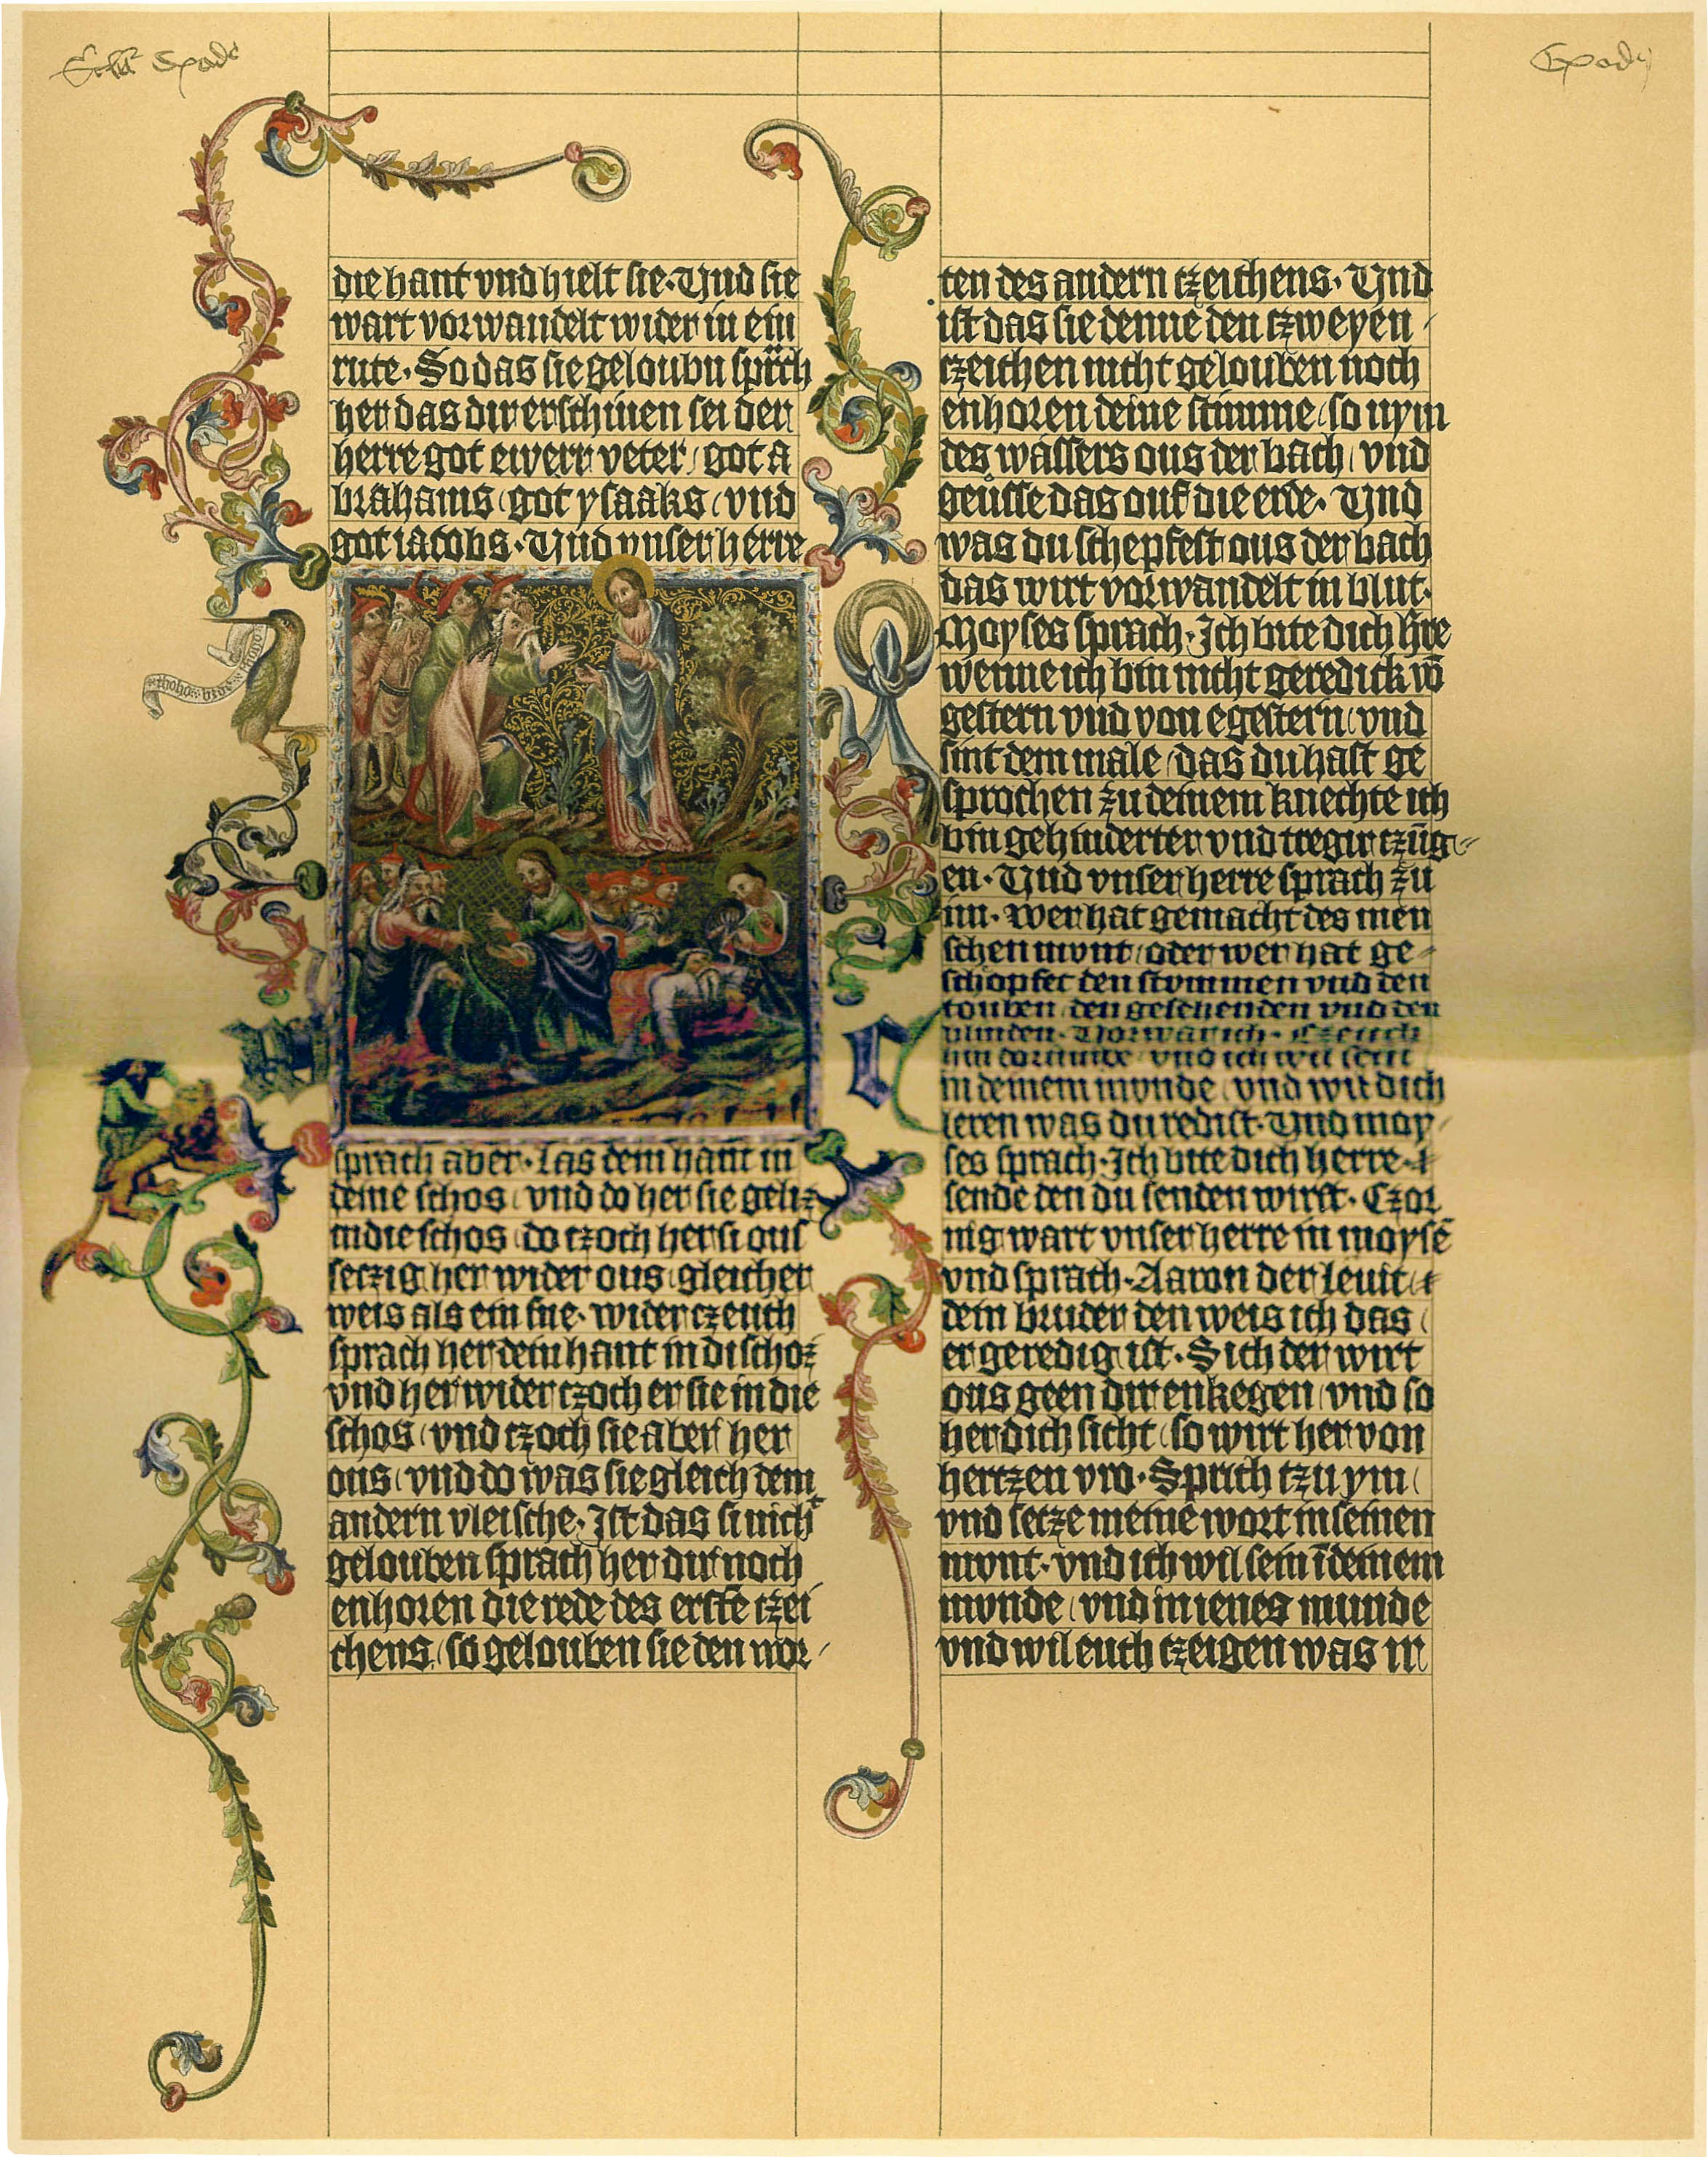 die hant vnd hielt sie. Vnd sie
wart vorwandelt wider in ein
rute. So das sie geloubn sprch
her das dir erschinen sei der
herre got ewerr veter, got a
brahams, got ysaaks, vnd
got iacobs. Vnd vnser herre
sprach aber. Las dein hant in
deine schos, vnd do her sie geliz
in die schos, do tzoch her si ous
setzig her wider ous, gleicher
weis als ein sne. wider czeuch
sprach her dein hant in di schoz
vnd her wider tzoch er sie in die
schos, vnd tzoch sie aber her
ous, vnd do was sie gleich dem
andern vleische. Ist das si nicht
gelouben sprach her dir noch
enhoren die rede des erste tzei
chens, so gelouben sie den wor
ten des andern tzeichens. Vnd
ist das sie denne den tzweyen
tzeichen nicht gelouben noch
enhoren deine stimme, so nym
des wassers ous der bach, vnd
geusse das ouf die erde. Vnd
was du schepfest ous der bach
das wirt vorwandelt in blut.
Moyses sprach. Ich bite dich hre
wenne ich bin nicht geredick vō
gestern vnd von egestern, vnd
sint dem male, das du hast ge
sprochen zu deinem knechte ich
bin gehinderter vnd tregir tzūg
en. Vnd vnser herre sprach zu
im. Wer hat gemacht des men
schen mvnt, oder wer hat ge
schopfet den stvmmen vnd den
touben, den gesehenden vnd den
blinden. Vorwar ich. Czeuch
hin dorumbe vnd ich wil sein
in deinem mvnde, vnd wil dich
leren was du redist. Vnd moy
ses sprach. Ich bite dich herre
sende den du senden wirst. Czor
nig wart vnser herre in moysē
vnd sprach. Aaron der leuit
dein bruder den weis ich das
er geredig ist. Sich der wirt
ous geen dir enkegen, vnd so
her dich sicht, so wirt her von
hertzen vro. Sprich tzu ym
vnd setze meine wort in seinen
mvnt. vnd ich wil sein ī deinem
mvnde, vnd in ienes munde
vnd wil euch tzeigen was ir